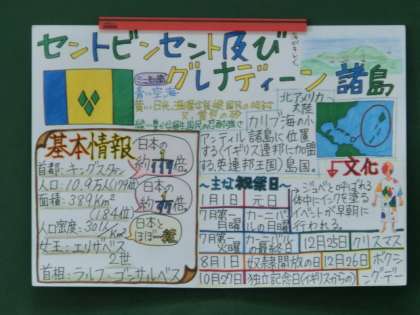 セントビンセント及び
グレナディーン諸島
北アメリカ
大陸
カリブ海の小
アンティル諸島に位置
するイギリス連邦に加盟
する英連邦王国
島国。
基本情報
首都：キングスタウン
人口：10.9万人(179位)
面積：389Km²
(184位)
人口密度：301人/Km²
女王：エリザベス
2世
首相：ラルフ・ゴンサルベス
日本の
約
倍
日本の
約
倍
日本と
ほぼ一緒
↓文化
〜主な祝祭日〜
1月1日 元日
7月第一 カーニバ
月曜日 ルの月曜
7月第一 カーニバル
火曜 の最終日
8月1日 奴隷開放の日
10月27日 独立記念日(イギリスからの)
12月25日 クリスマス
12月26日 ボクシ
ングデー
ジュベと呼ばれる
体中にインクを塗る
イベントが早朝に
行われる。